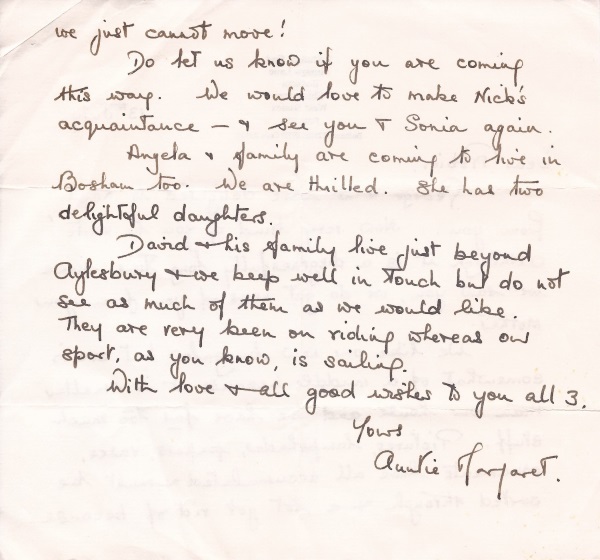 we just cannot move!
Do let us know if you are coming
this way. We would love to make Nick's
acquaintance – & see you & Sonia again.
Angela & family are coming to live in
Bosham too. We are thrilled. She has two
delightful daughters.
David & his family live just beyond
Aylesbury & we keep well in touch but do not
see as much of them as we would like.
They are very keen on riding whereas our
sport, as you know, is sailing.
With love & all good wishes to you all 3.
Yours
Auntie Margaret.